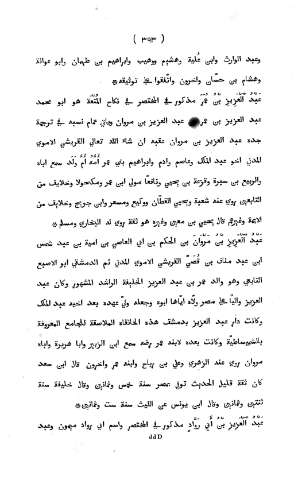 ( ٣٩٣ )
وعبد الوارث وابى عُلية وهشيم ووهيب وابراهيم بن طهمان وابو عوانة
وهشام بن حسّان واخرون واتّفقوا على توثيقه ۞
عَبْد العَزِيز بْن عُمَر مذكور فى المختصر فى نكاح المُتْعَة هو ابو محمد
عبد العزيز بن عمر بن عبد العزيز بن مروان وباقى تمام نسبه فى ترجمة
جده عبد العزيز بن مروان عقيبه ان شاء الله تعالى القريشى الاموى
المدنى اخو عبد الملك وعاصم وادم وابراهيم بنى عمر أُمّه أُم ولد سمع اباه
والربيع بن سبرة وقزعة بن يحيى ونافعا مولى ابن عمر ومكحولا وخلايق من
التابعين روى عنه شعبة ويحيى القطّان ووكيع ومسعر وابن جريج وخلايف من
الائمة وغيرهم قال يحيى بن معين وغيره هو ثقة روى له البخارى ومسلم ۞
عَبْد العَزِيز بْن مَرْوَان بن الحكم بن ابى العاصى بن امية بن عبد شمس
ابن عبد مناف بن قُصَىّ القريشى الاموى المدنى ثم الدمشقى ابو الاصبغ
التابعى وهو والد عمر بن عبد العزيز الخليفة الراشد المشهور وكان عبد
العزيز واليًا على مصر ولّاه ايّاها ابوه وجعله ولىّ عهده بعد اخيه عبد الملك
وكانت دار عبد العزيز بدمشق هذه الخانقاه الملاصقة للجامع المعروفة
بالشميساطية وكانت بعده لابنه عمر رضه سمع ابن الزبير وابا هريرة واباه
مروان روى عنه الزهرى وعلى بن رباح وابنه عمر واخرون قال ابن سعد
كان ثقة قليل الحديث توفى بمصر سنة خمس وثمانين وقال خليفة سنة
ثنتين وثمانين وقال ابن يونس عن الليث سنة ست وثمانين ۞
عَبْدُ العَزِيز بْن أَبِى رَوَّاد مذكور فى المختصر واسم ابى رواد ميمون وعبد
ddD